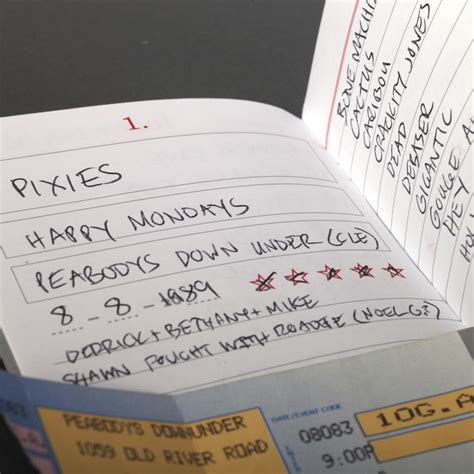 1.
PIXIES
HAPPY MONDAYS
PEABODYS DOWN UNDER (CLE)
8-8-1989
DEDRICK + BETHANY + MIKE
SHAWN FOUGHT WITH ROADIE (NOEL G?)
BONE MACHI
CACTUS
CARIBOU
CRACKITY JONES
DEAD
DEBASER
GIGANTIC
GOUGE A
HEY
08083
PEABODYS DOWNUNDER
1059 OLD RIVER ROAD
DATE/EVENT CODE
08083
10G.A
9:00P